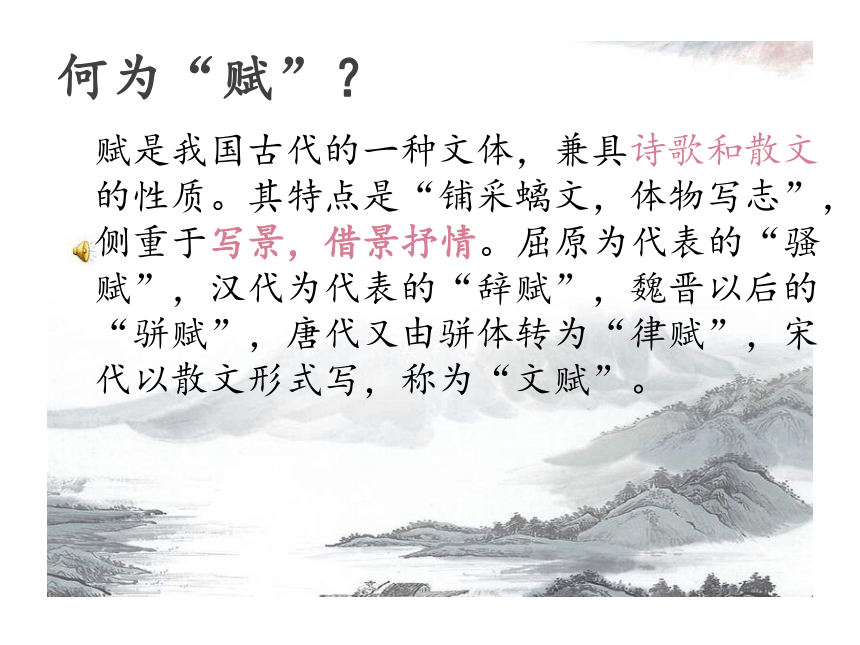 何为“赋”？
赋是我国古代的一种文体，兼具诗歌和散文
的性质。其特点是“铺采螭文，体物写志”，
侧重于写景，借景抒情。屈原为代表的“骚
赋”，汉代为代表的“辞赋”，魏晋以后的
“骈赋”，唐代又由骈体转为“律赋”，宋
代以散文形式写，称为“文赋”。